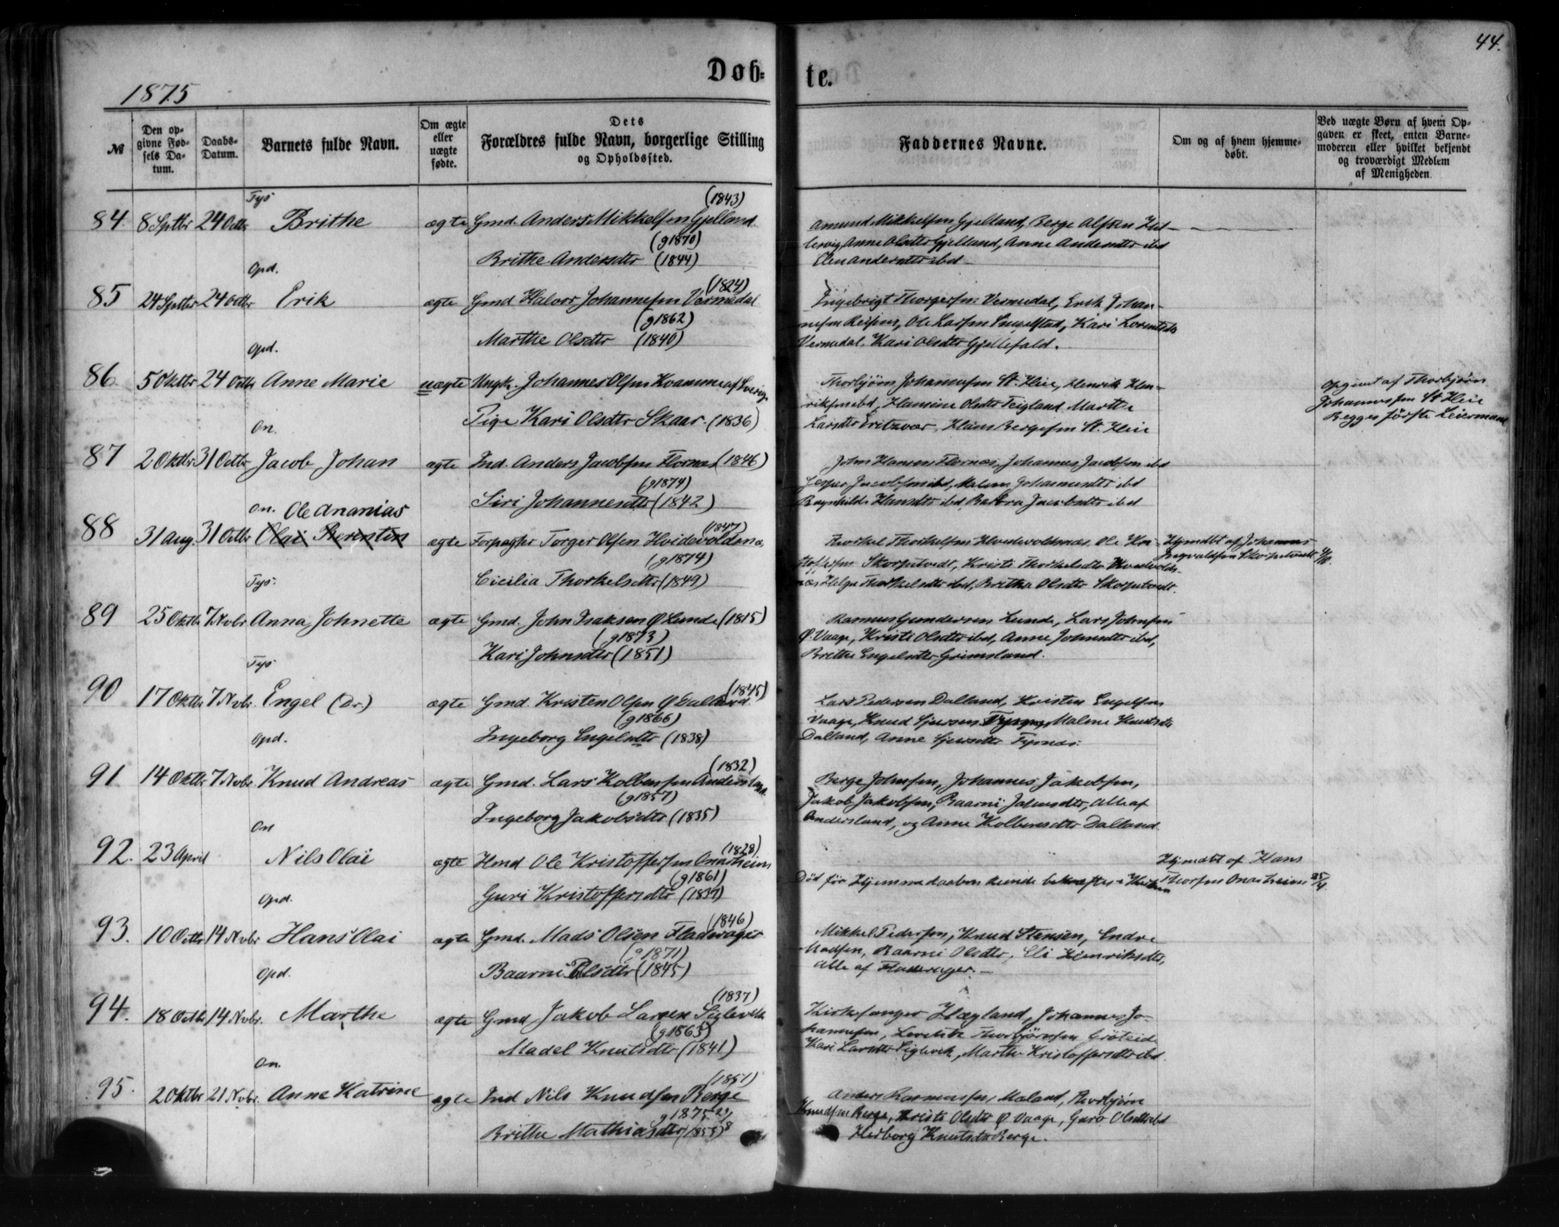 44.
1875
Døb-
te.
№
Den op-
givne Fød-
sels Da-
tum.
Daabs-
Datum.
Barnets fulde Navn.
Om ægte
eller
uægte
fødte.
Dets
Forældres fulde Navn, borgerlige Stilling
og Opholdssted.
Faddernes Navne.
Om og af hvem hjemme-
døbt.
Ved uægte Børn af hvem Op-
gaven er skeet, enten Barne-
moderen eller hvilket bekjendt
og troværdigt Medlem
af Menigheden
Fys
(1843)
84 8 Sptbr 24 Octbr Brithe ægte Gmd. Anders Mikkelsen Gjelland
Amund Mikkelsen Gjelland, Berge Alfsen
Anne Olsdtr Gjelland, Anne Andersdtr ibd
(g1870)
Brithe Andersdtr (1844)
Andersdtr ibd
Opd.
(1824)
85 24 Sptbr 24 Octbr Erik ægte Gmd Halvor Johannesen Vernedal
Ingebrigt Thorgersen Vernedal, Erik Johan-
(g1862)
nesen, Ole Larsen, Kari
Marthe Olsdtr (1840)
Vernedal, Kari Olsdtr Gjellefald.
Opd.
86 5 Oktbr 24 Octbr Anne Marie uægte Ungk. Johannes Olsen Kvamme af
Thorbjørn Johannesen St. Heie, Henrik Hen-
riksen ibd, Hansine Olsdtr Teigland Marthe
Pige Kari Olsdtr Skaar. (1836)
Larsdtr, Hans Bergesen St. Heie
Opgivet af Thorbjørn
Johannesen St Heie
Begges første Leiermaal
On.
87 2 Oktbr 31 Octbr Jacob Johan ægte Ind. Anders Jacobsen Flornæs (1846)
John Hansen Flornæs, Johannes Jacobsen ibd
(g1874)
Jacobsen ibd, Malene Johannesdtr ibd
Siri Johannesdtr (1842)
Ragnhilde Hansdtr ibd Jacobsdtr ibd
On. Ole Ananias
(1847)
88 31 Aug. 31 Octbr Olai Berentin ægte Forpagter Torger Olsen
Thorkel Thorkelsen, Ole
Hjmdbt af Johannes
Ingvaldsen
(g1874)
Skorpetvedt, Kristi Thorkelsdtr
Cicilia Thorkelsdtr (1849)
Helga Thorkelsdtr ibd, Brithe Olsdtr Skorpetvedt.
Fys.
89 25 Oktbr 7 Novbr Anna Johnette ægte Gmd. John Isaksen Ø Lunde (1815)
Rasmus Gundersen Lunde, Lars Johnsen
(g1873)
Ø. Vaage, Kristi Olsdtr ibd, Anne Johnsdtr ibd,
Kari Johnsdtr (1851)
Brithe Engelsdtr Grimsland.
Fys
(1845)
90 17 Oktbr 7 Novbr. Engel (Dr.) ægte Gmd. Kristen Olsen Ø Dalland
Lars Pedersen Dalland, Kristen Engelsen
(g1866)
Vaage, Knud Malene Knutsdtr
Ingeborg Engelsdtr (1838)
Dalland, Anne
Opd.
(1832)
91 14 Oktbr 7 Novbr Knud Andreas ægte Gmd. Lars Kolbensen Andersland
Berge Johnsen, Johannes Jakobsen,
(g1857)
Jakob Jakobsen, Baarni Johnsdtr, Alle af
Ingeborg Jakobsdtr (1835)
Andersland, og Anne Kolbensdtr Dalland.
On
(1828)
92. 23 April Nils Olai ægte Hmd Ole Kristoffersen Onarheim
Hjmdbt af Hans
(g1861)
Død før Hjemmedaaben kunde bekræftes i Kirken
Thorsen Onarheim 25/4
Guri Kristoffersdtr (1837)
Opd.
(1846)
93. 10 Octbr 14 Novbr Hans Olai ægte Gmd. Mads Olsen Fladerager
Mikkel Pedersen, Knud Stensen, Endre
(g1871)
Madsen, Baarni Olsdtr, Eli Henriksdtr,
Baarni Olsdtr (1845)
Alle af Fladerager. —
Opd.
(1837)
94. 18 Octbr 14 Novbr. Marthe ægte Gmd Jakob Larsen Siglevik
Kirkesanger Hægland, Johannes Jo-
(g1863)
hannesen, Thorbjørnsen
Madel Knutsdtr (1841)
Kari Larsdtr Siglevik, Marthe Kristoffersdtr ibd.
On.
(1851)
95. 2 Oktbr 21 Novbr. Anne Katrine ægte Ind Nils Knudsen Berge
Anders Rasmussen Maland, Thorbjørn
g1875
Knudsen Berge, Kristi Olsdtr Ø Vaage, Guro Olsdtr ibd
Brithe Mathiasdtr (1853)
Herborg Knutsdtr Berge.